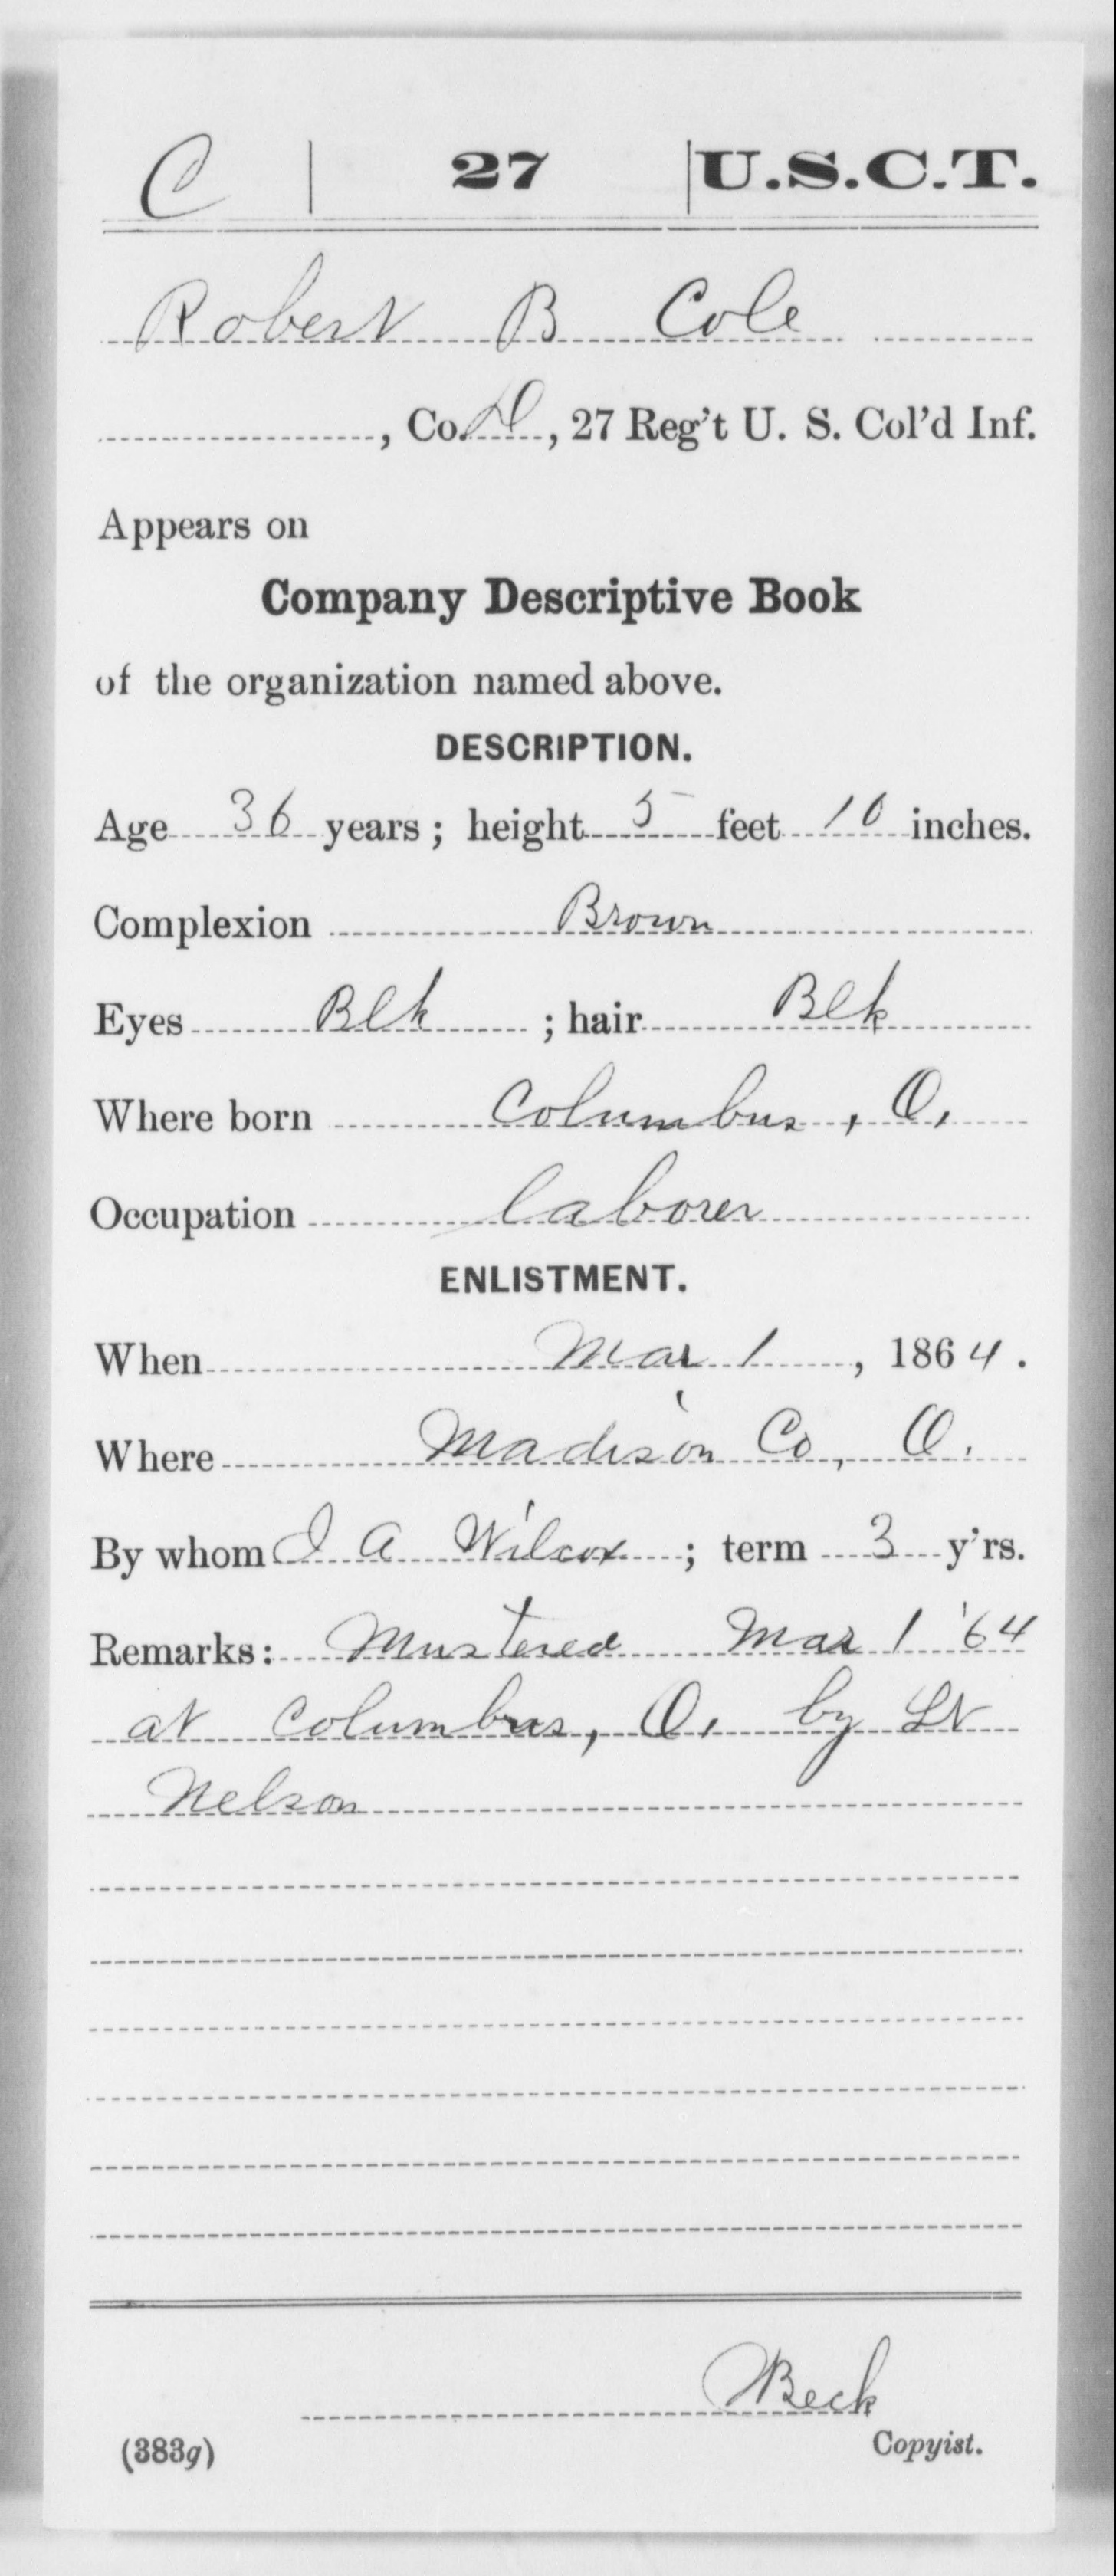 C | 27 | U.S.C.T.
Robert B Cole
, Co. D, 27 Reg't U. S. Col'd Inf.
Appears on
Company Descriptive Book
of the organization named above.
DESCRIPTION.
Age 36 years; height 5 feet 10 inches.
Complexion Brown
Eyes Blk ; hair Blk
Where born Columbus, O.
Occupation laborer
ENLISTMENT.
When Mar 1, 1864.
Where Madison Co, O.
By whom I A Wilcox; term 3 y'rs.
Remarks: Mustered Mar 1 '64
at Columbus, O, by Lt
Nelson
Beck
(383g) Copyist.